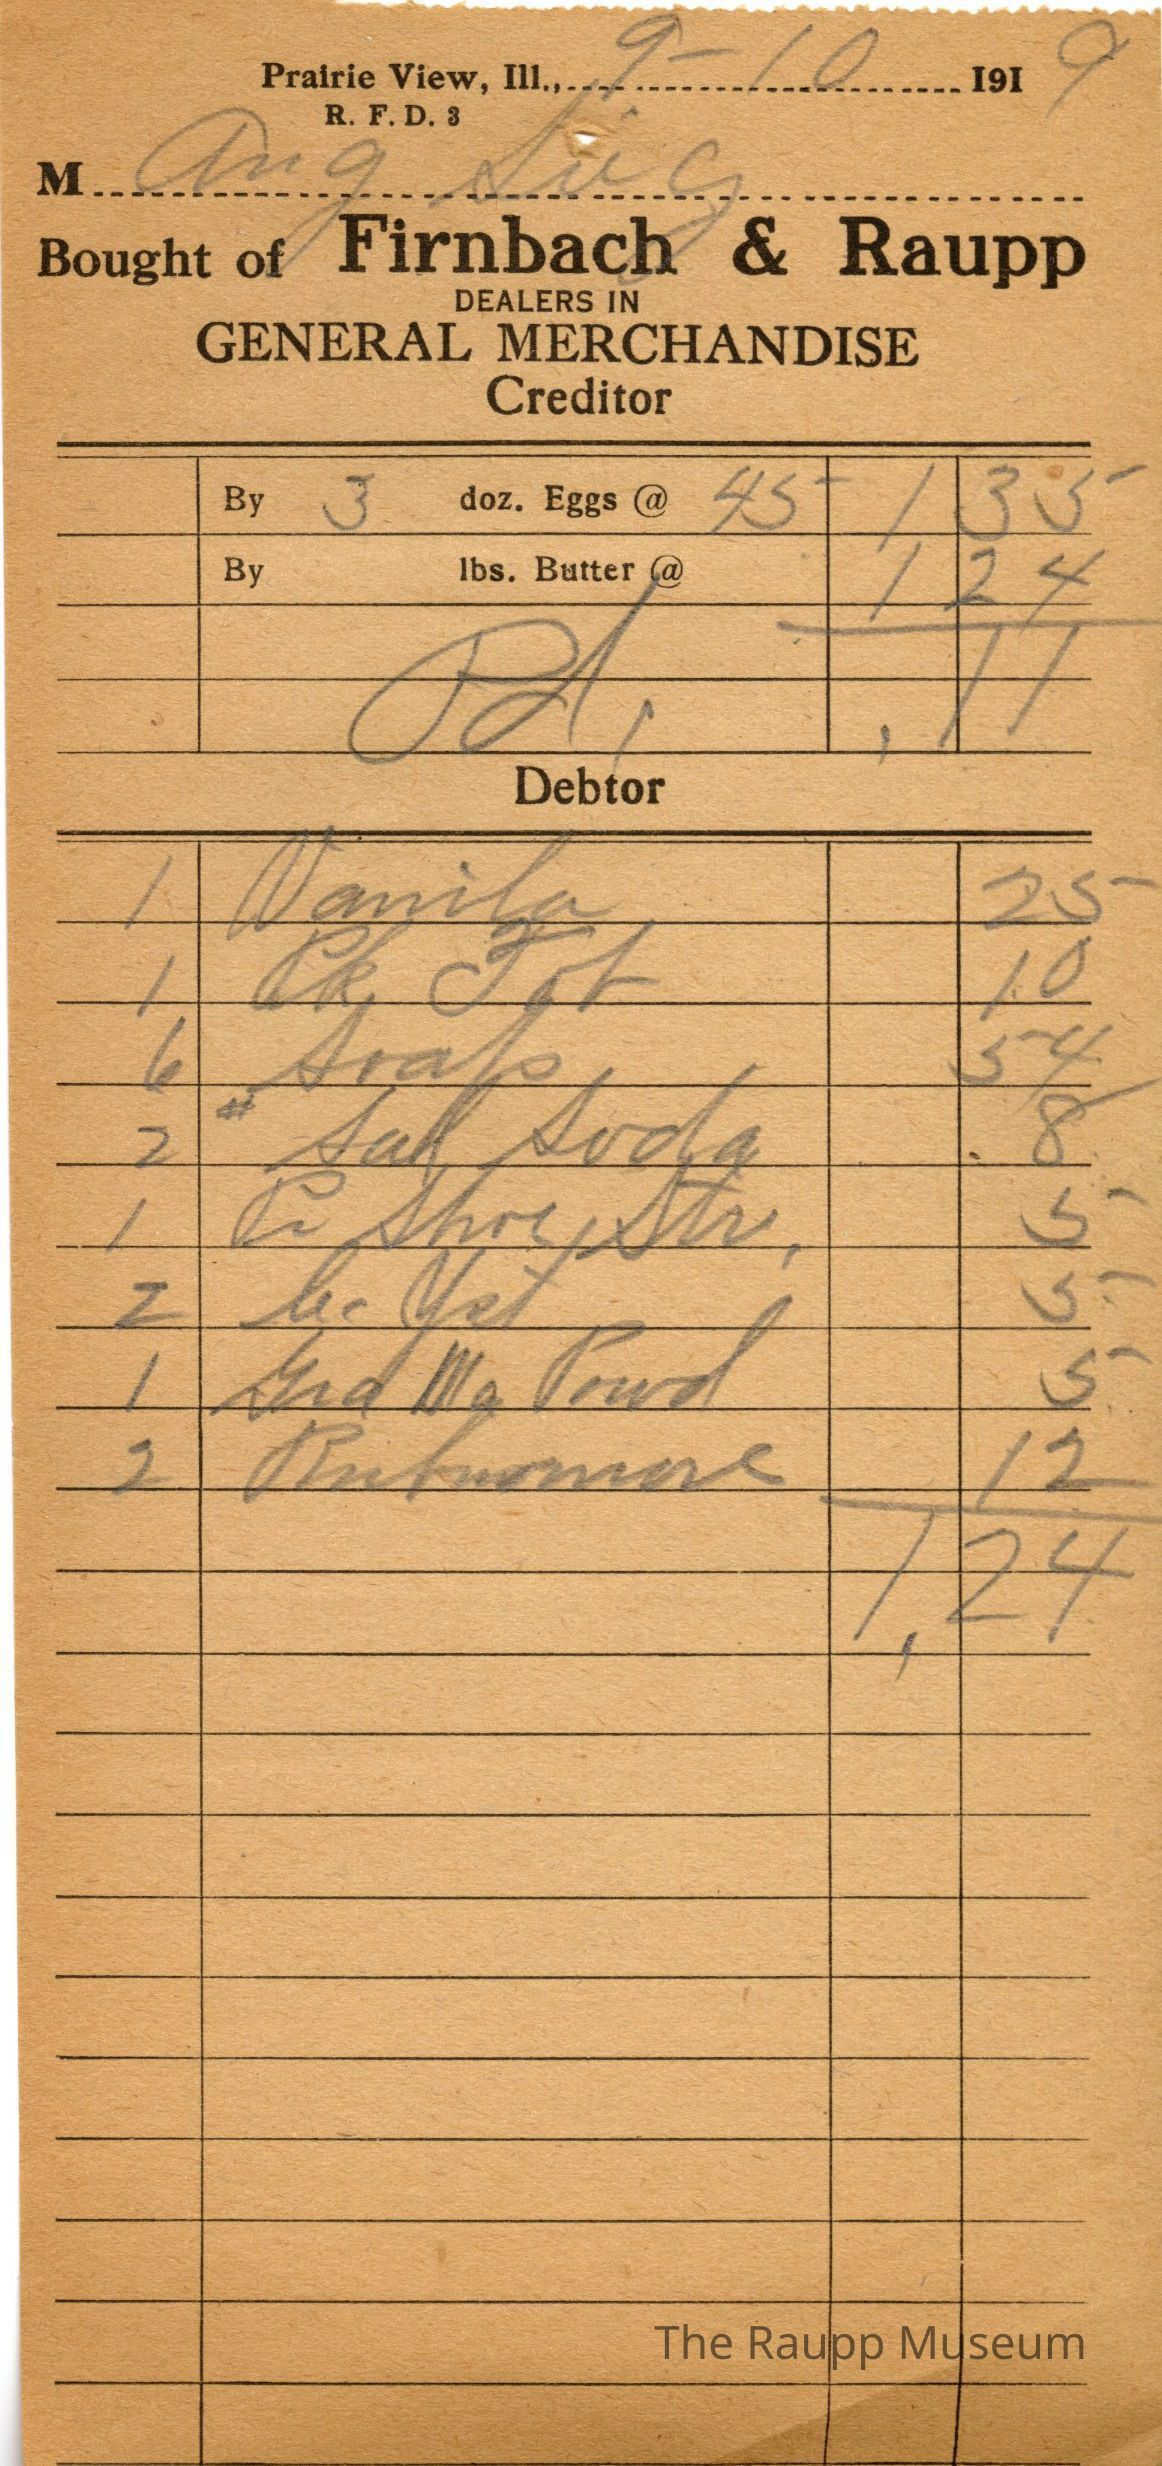 Prairie View, Ill., 9-10 1919
R. F. D. 3
M Aug
Bought of Firnbach & Raupp
DEALERS IN
GENERAL MERCHANDISE
Creditor
By 3 doz. Eggs @ 45 1 35
By lbs. Butter @ 1 24
Pd, , 11
Debtor
1 Vanila 25
1 Pk Tob 10
6 Soap 54
2 # Sal Soda 8
1 Pr Shoe Str, 5
2 Yst 5
1 Gra Ma Powd 5
2 Rubnomore 12
1,24
The Raupp Museum